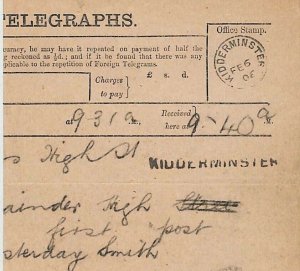 TELEGRAPHS.
Office Stamp.
curacy, he may have it repeated on payment of half the
ng reckoned as ½d.; and if it be found that there was any
plicable to the repetition of Foreign Telegrams.
KIDDERMINSTER
FE 6
06
Charges
to pay
£ s. d.
at 9 31 a M.,
Received
here at 9.40 a
High St
KIDDERMINSTER
ainder High
first post
sterday Smith